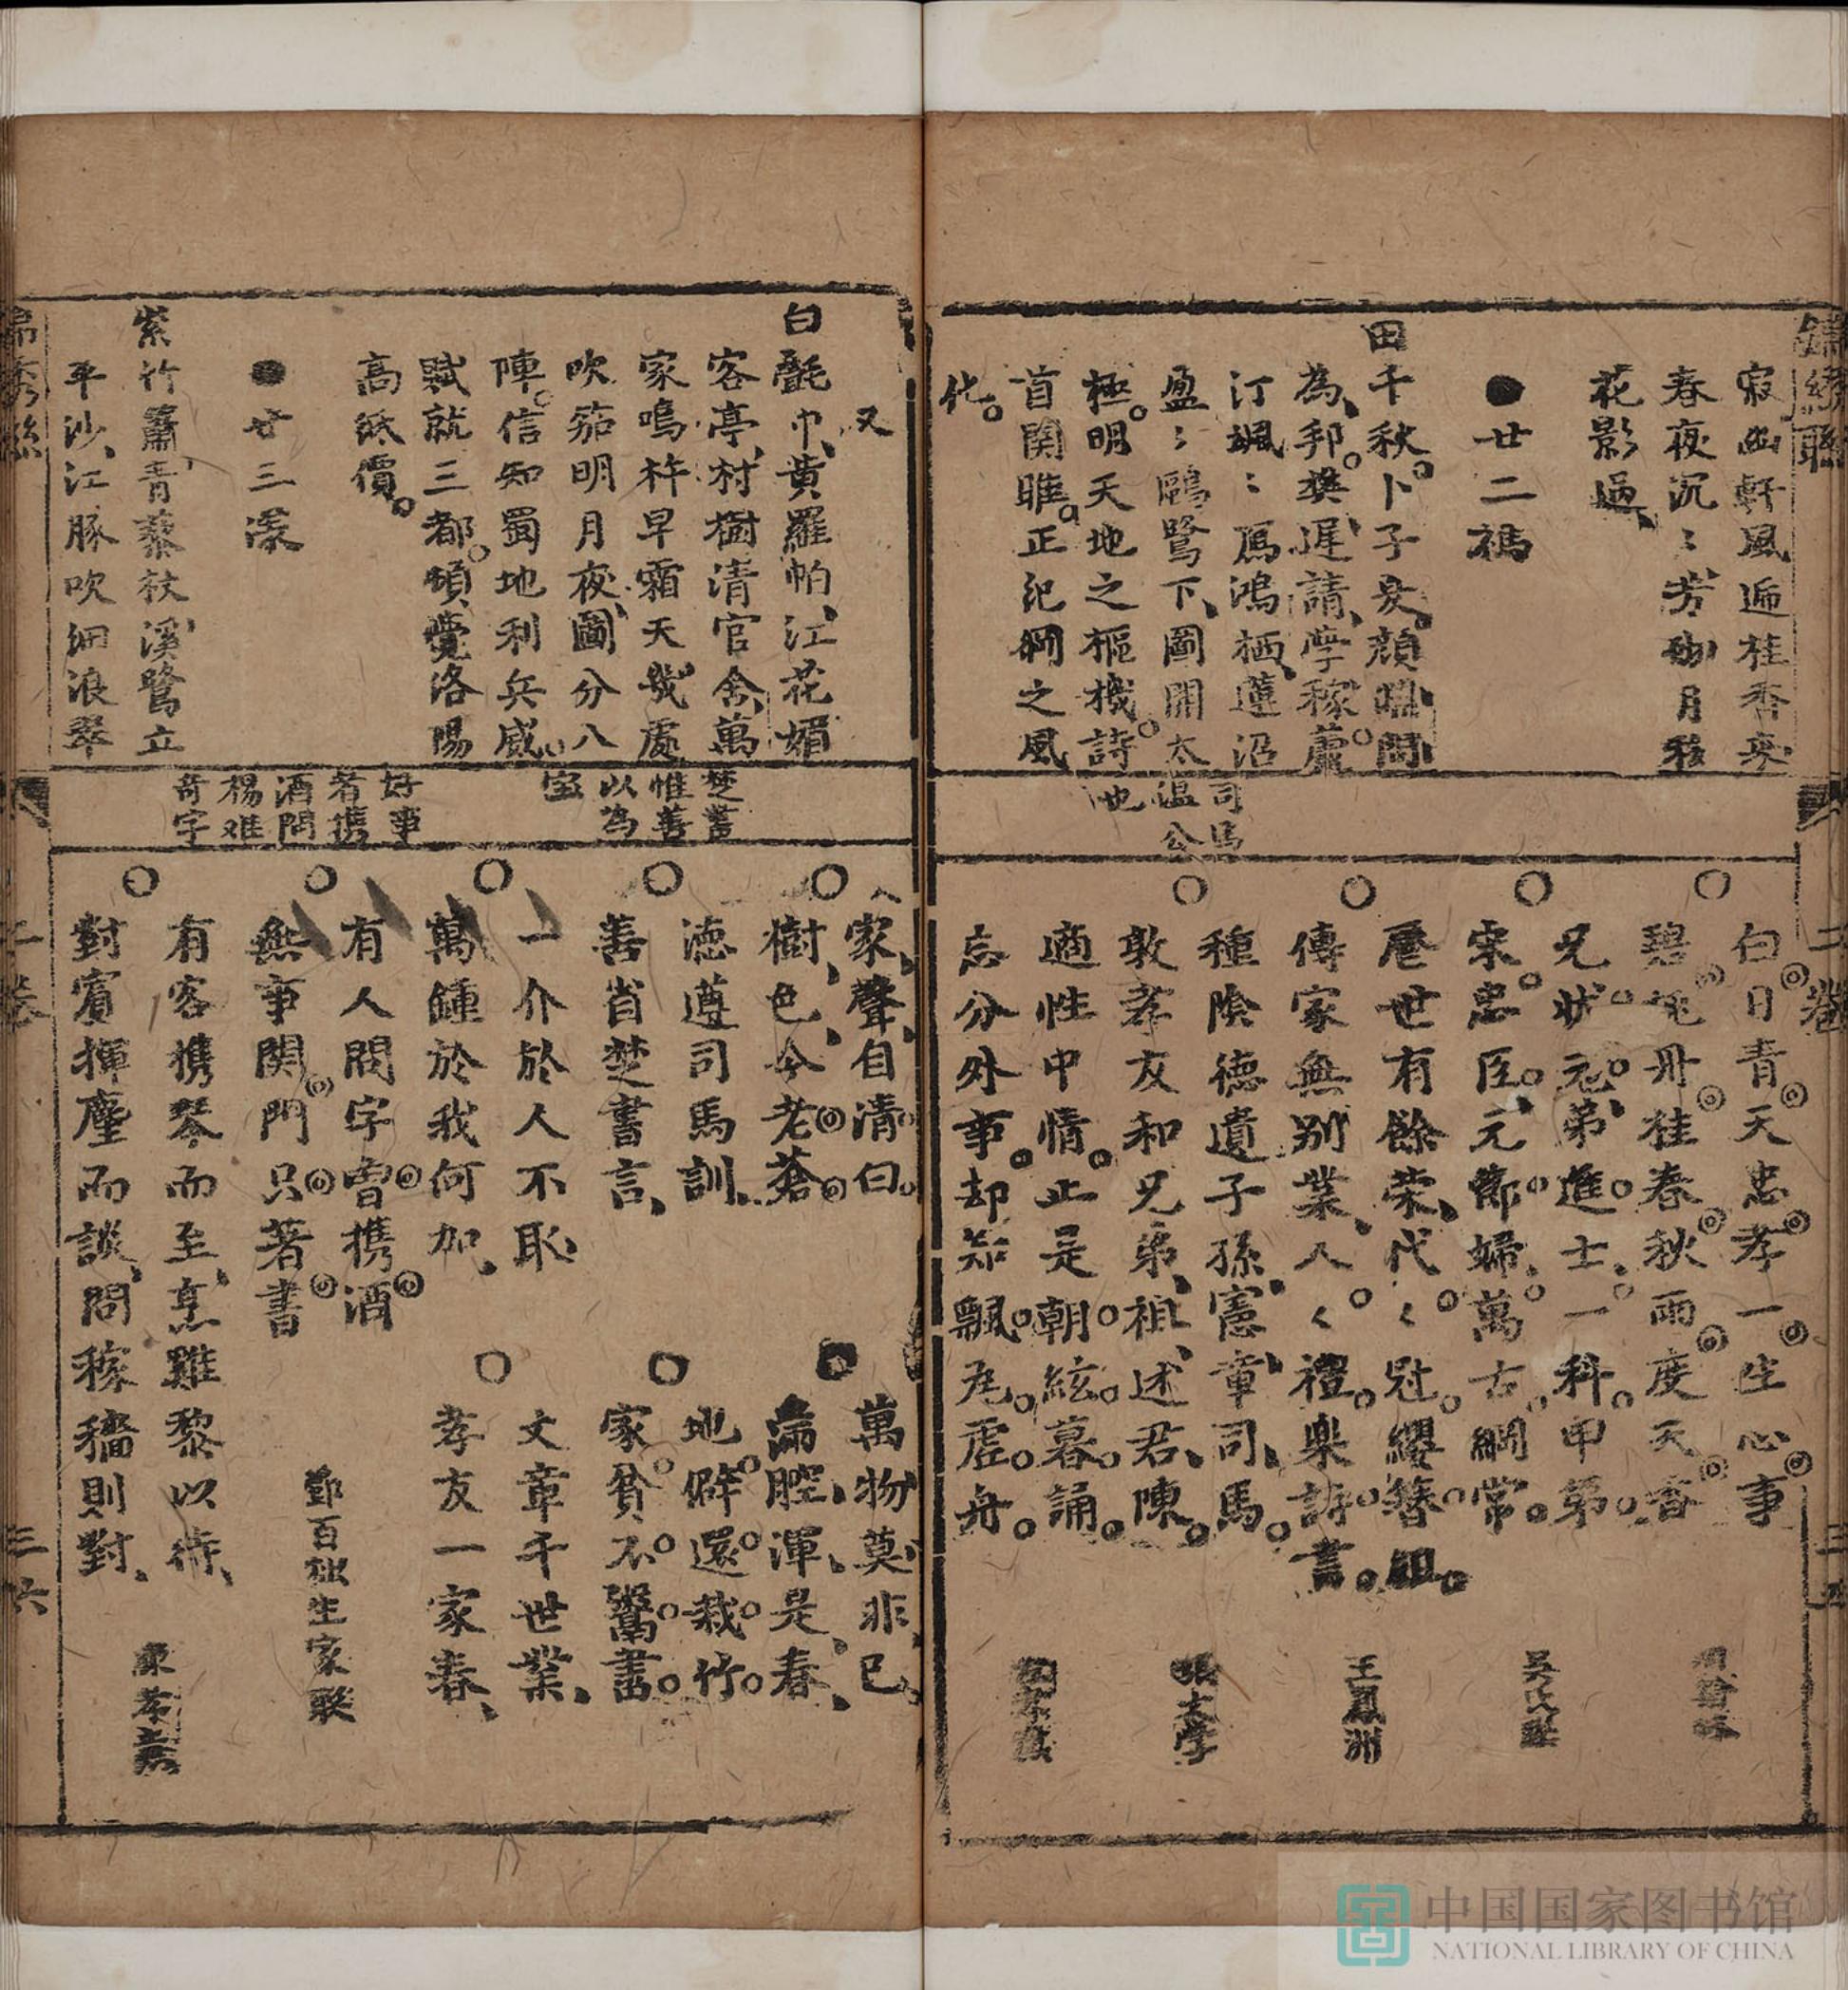 寂幽軒風逓桂香來
春夜沉〻芳砌月移
花影過
●廿二禡
田千秋卜子夏顔淵問
為邦樊遲請學稼蘆
汀颯〻鴈鴻栖蓮沼
盈〻鷗鷺下圖開太
極明天地之樞機詩
首関雎正紀綱之風
化
司馬
温公
也
白日青天忠孝一生心事
碧兔丹桂春秋兩度天香
兄状元弟進士一科甲第
宗忠臣元節婦萬古綱常
歷世有餘荣代〻冠纓簪組
傳家無别業人〻禮樂詩書
種陰德遺子孫憲章司馬
敦孝友和兄弟祖述君陳
適性中情止是朝絃暮誦
忘分外事却知飄瓦虛舟
吳
王鳳洲
張太學
二卷
三五
又
白氎巾黄羅帕江花媚
客亭村樹清官舍萬
家鳴杵早霜天幾處
吹笳明月夜圖分八
陣信知蜀地利兵威
賦就三都頓覺洛陽
高紙價
●廿三漾
紫竹簫青藜杖溪鷺立
平沙江豚吹细浪翠
楚書
惟善
以為
宝
好事
者携
酒問
楊雄
竒字
家聲自清白
樹色今老蒼
德遵司馬訓
善省楚書言
一介於人不耻
萬鍾於我何加
有人問字曾携酒
無事関門只著書
有客携琴而至烹雞黎以待
對賓揮塵而談問稼穡則對
萬物莫非已
滿腔渾是春
地僻還栽竹
家貧不鬻書
文章千世業
孝友一家春
鄭百拙生家联
二卷
三六
中国国家图书馆
NATIONAL LIBRARY OF CHINA